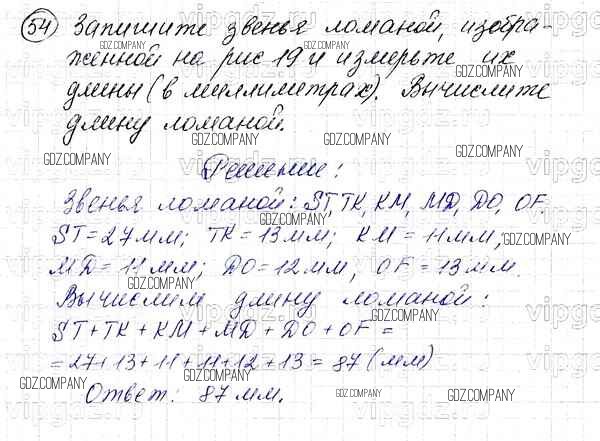 54 Запишите звенья ломаной, изобра-
женной на рис 19 и измерьте их
длины (в миллиметрах). Вычислите
длину ломаной.
Решение:
Звенья ломаной: ST, TK, KM, MD, DO, OF.
ST = 27 мм; TK = 13 мм; KM = 11 мм;
MD = 11 мм; DO = 12 мм, OF = 13 мм.
Вычислим длину ломаной:
ST + TK + KM + MD + DO + OF =
= 27 + 13 + 11 + 11 + 12 + 13 = 87 (мм)
Ответ: 87 мм.